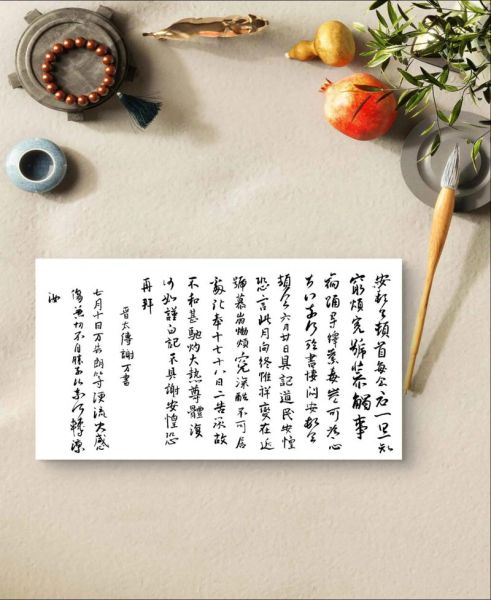 安頓首頓首每念君一旦知
窮煩冤號慕觸事
崩踊尋繹荼毒豈可為心
奈何奈何臨書悽悶安頓首
頓首六月廿日具記道民安惶
恐言此月向終惟祥變在近
號慕崩慟煩冤深酷不可居
處比奉十七十八日二告承故
不和甚馳灼大熱尊體復
何如謹白記不具謝安惶恐
再拜
晉太傅謝萬書
七月十日萬告朗等隕流大感
傷兼切不自勝奈何奈何轉涼
汝